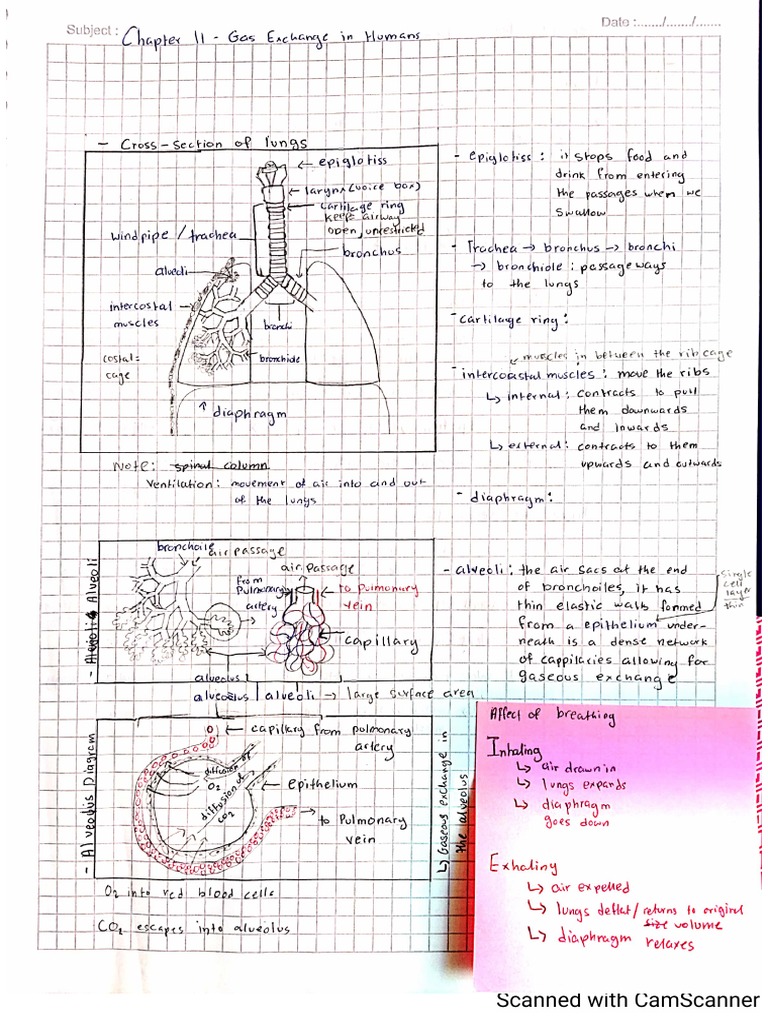 Subject : Chapter 11 - Gas Exchange in Humans
Date :......./......./.......
- Cross-section of lungs
← epiglotiss
← larynx (voice box)
← cartilage ring
keeps airway
open, unrestricted
windpipe / trachea
bronchus
alveoli
intercostal
muscles
bronchi
costal =
cage
bronchiole
↑ diaphragm
Note: spinal column
Ventilation: movement of air into and out
of the lungs
- epiglotiss : it stops food and
drink from entering
the passages when we
swallow
- Trachea → bronchus → bronchi
→ bronchiole : passageways
to the lungs
- cartilage ring :
muscles in between the rib cage
- intercoastal muscles : move the ribs
↳ internal : contracts to pull
them downwards
and inwards
↳ external : contracts to them
upwards and outwards
- diaphragm :
- Alveoli & Alveoli
bronchoile
air passage
air passage
from
pulmonary
artery
→ to pulmonary
vein
capillary
alveolus
alveolus / alveoli → large surface area
- alveoli : the air sacs at the end
of bronchoiles, it has
thin elastic walls formed
from a epithelium under-
neath is a dense network
of cappilacies allowing for
gaseous exchange
single
cell
layer
thin
- Alveolus Diagram
← capillary from pulmonary
artery
diffusion of
O₂
diffusion of
CO₂
← epithelium
→ to Pulmonary
vein
↳ Gaseous exchange in
the alveolus
O₂ into red blood cells
CO₂ escapes into alveolus
Affect of breathing
Inhaling
↳ air drawn in
↳ lungs expands
↳ diaphragm
goes down
Exhaling
↳ air expelled
↳ lungs deflat / returns to original
size volume
↳ diaphragm relaxes
Scanned with CamScanner